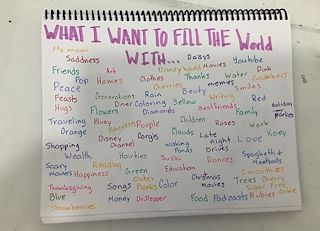 WHAT I WANT TO FILL THE World
WITH...
Daisys
My mom
Disney World Movies Youtube
Saddness
Friends Art Clothes Thanks Water Pink
Pop Homes Cherries memes Cucmbers
Peace Rain Beuty Smiles
Feasts Generations Writing Red
Diner Coloring Yellow Holiday
Hugs Flowers Diamonds Bestfriends Family parties
Traveling Bluey Princesses Purple Children Roses work
Orange
Shopping Disney Corgis Clouds Late night Love Koey
channel walking Drives
Wealth Hairties Ponds
Scary Reading Sushi Dances Spaghetti &
movies Happiness Green Education Meatballs
Outer Christmas Smoothies
Thanksgiving Songs Banks Color movies Trees Cherry
Blue Sugar Free
Money Dr.Pepper Food Podcasts Rubies
Strawberries